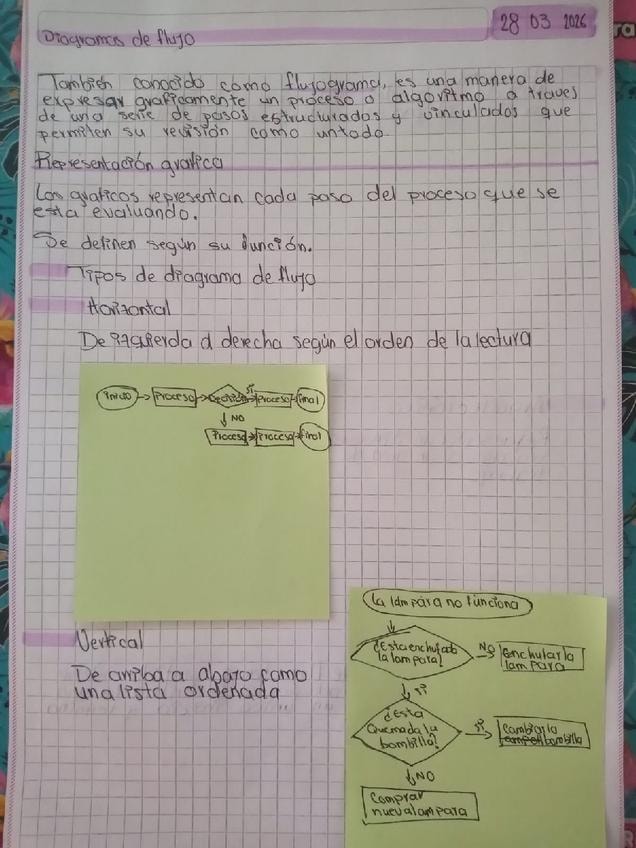 Diagramas de flujo
28 03 2026
También conocido como flujograma, es una manera de
expresar graficamente un proceso o algoritmo a traves
de una serie de pasos estructurados y vinculados que
permiten su revisión como untodo.
Representación grafica
Los graficos representan cada paso del proceso que se
esta evaluando.
Se definen según su función.
Tipos de diagrama de flujo
Horizontal
De izquierda a derecha según el orden de la lectura
inicio Proceso Decisión Sí Proceso final
NO
Proceso Proceso final
Vertical
De arriba a abajo como
una lista ordenada
La lámpara no funciona
¿Esta enchufado
la lampara?
NO
Enchufar la
lampara
sí
¿Esta
Quemada la
bombilla?
sí
Cambiar la
bombilla
NO
Comprar
nueva lampara